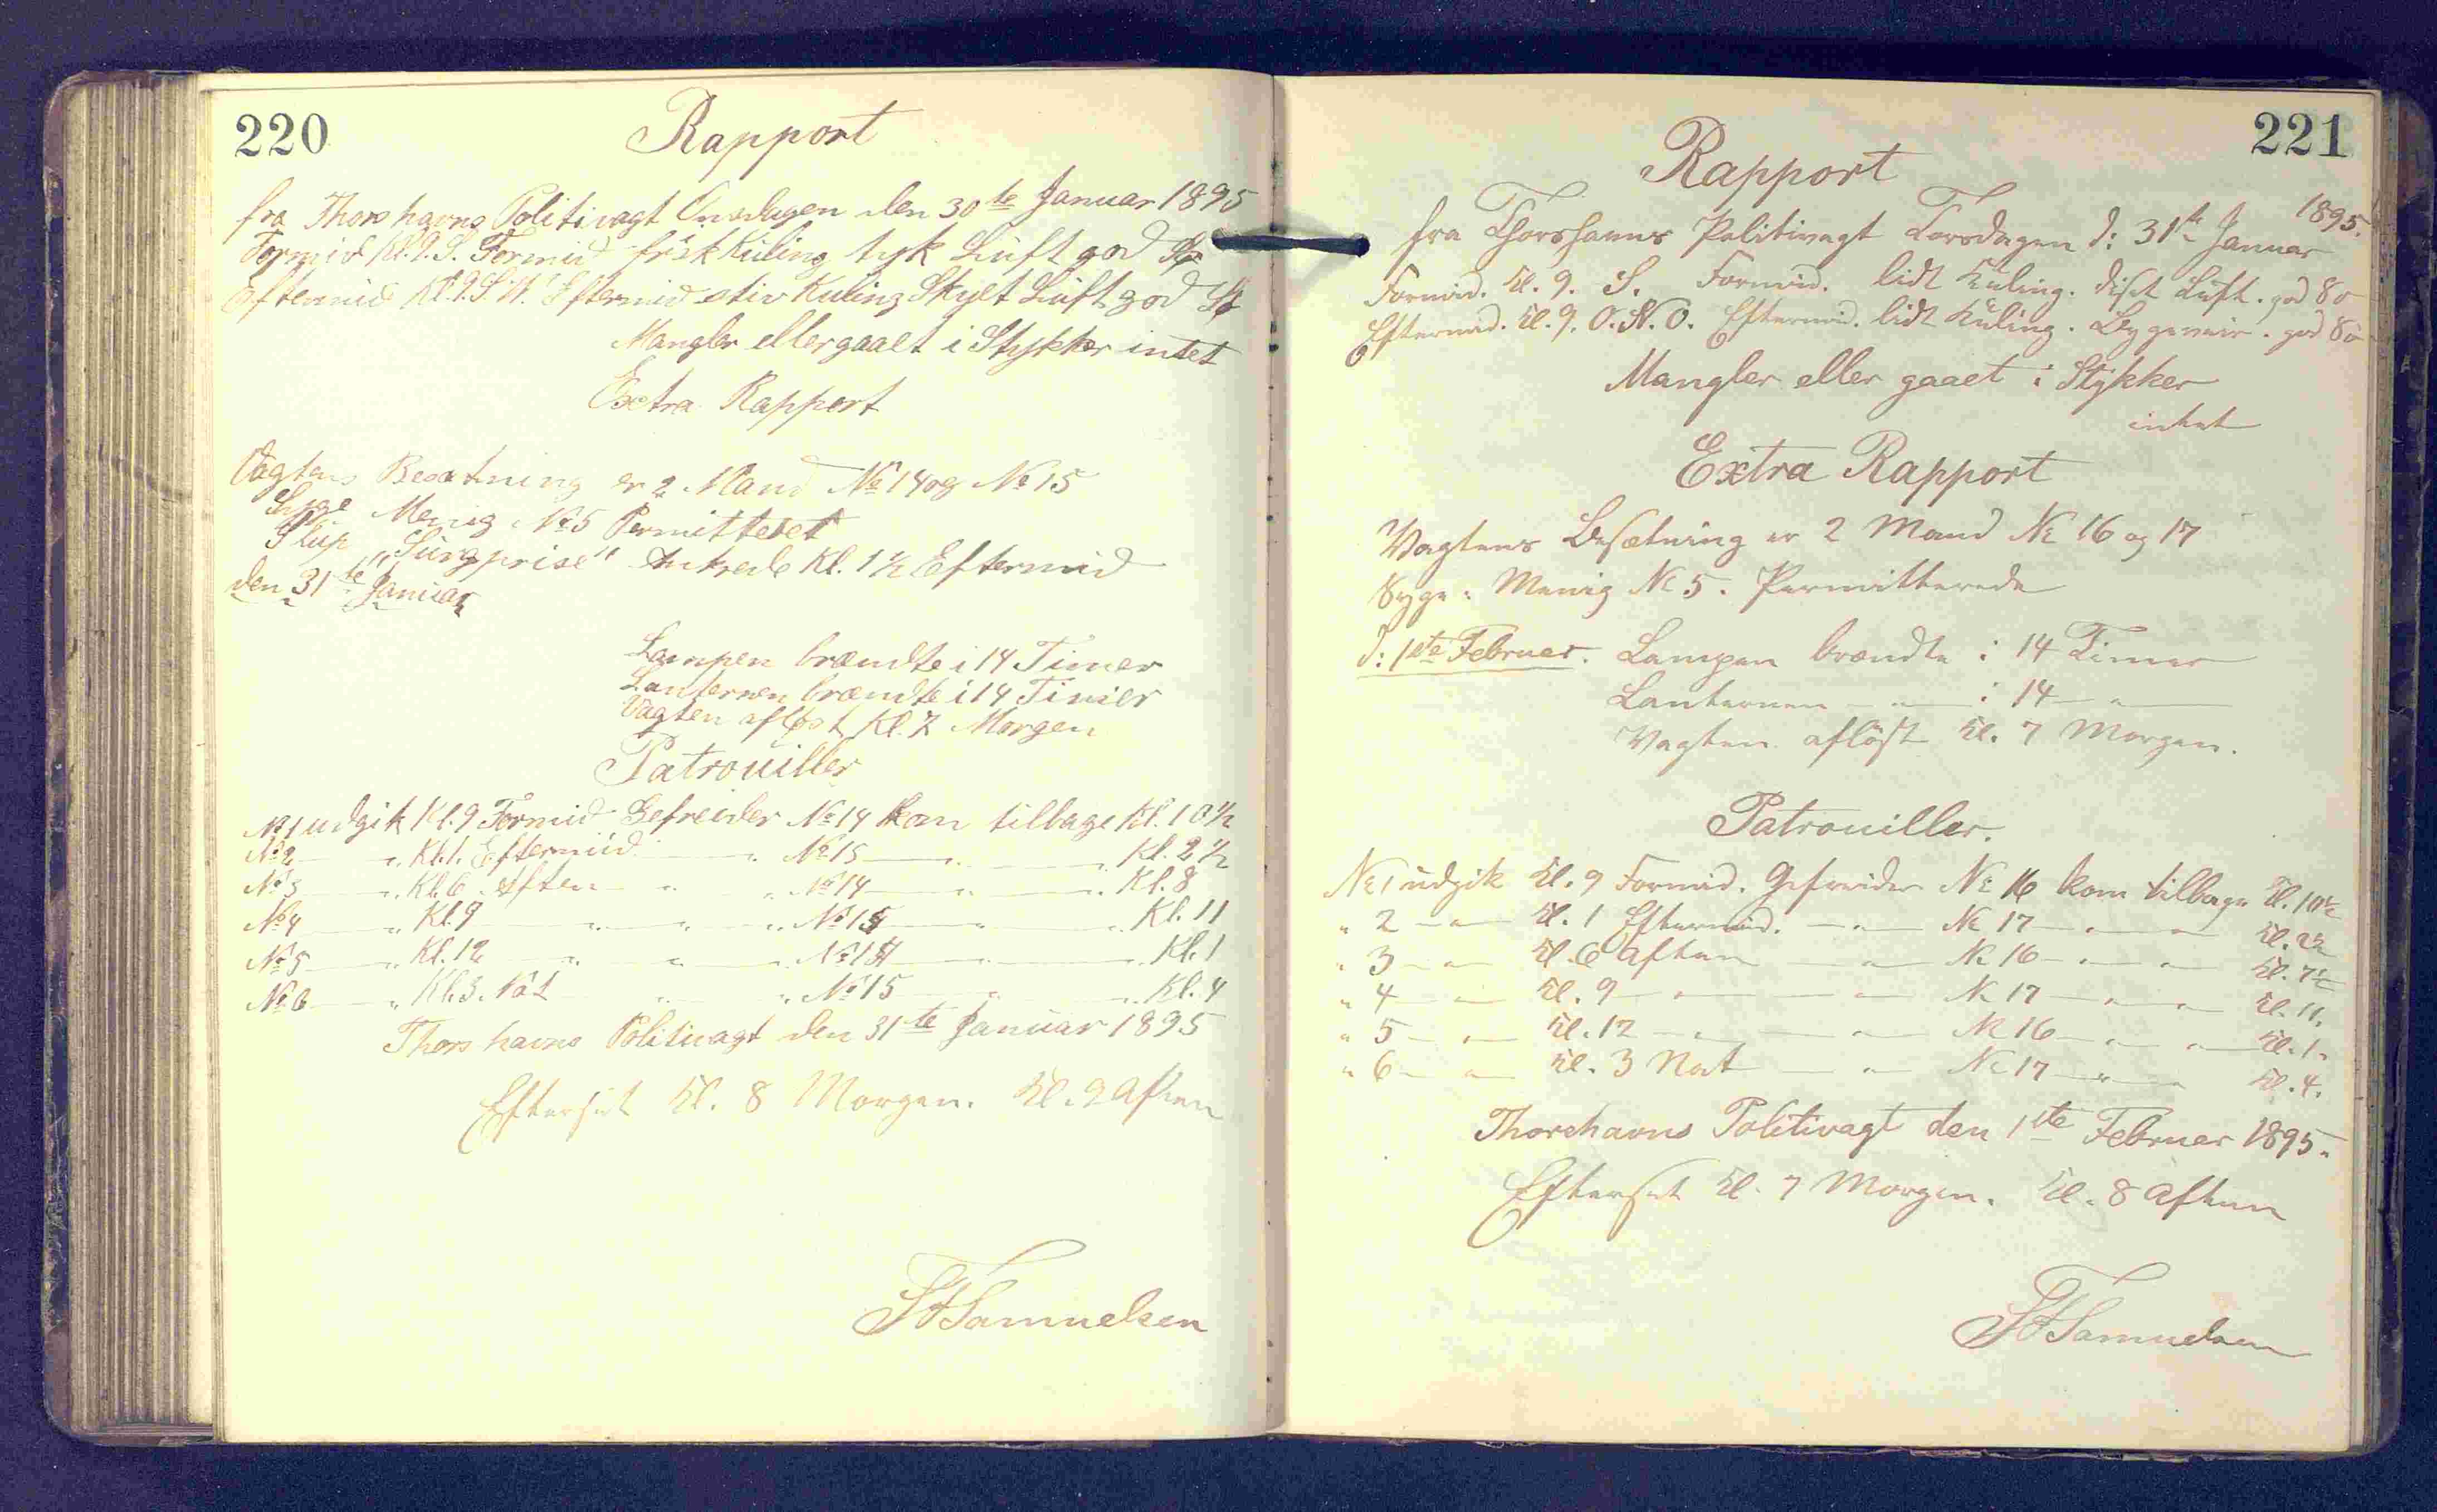 220
Rapport
fra Thorshavns Politivagt Onsdagen den 30te Januar 1895
Formid Kl. 9. S. Formid frisk Kuling tyk Luft god Sø
Eftermid Kl. 9. S.V. Eftermid stiv Kuling Skyet Luft god Sø
Mangler eller gaaet i Stykker intet
Extra Rapport
Vagtens Besætning er 2 Mand No 14 og No 15
Syge Menig No 5 Permitteret
Slup "Surprise" Ankrede Kl. 1½ Eftermid
den 31te Januar
Lampen brændte i 14 Timer
Lanternen brændte i 14 Timer
Vagten afløst Kl. 7 Morgen
Patrouiller
No 1 udgik Kl. 9 Formid Gefreider No 14 kom tilbage Kl. 10½
No 2 — " Kl. 1. Eftermid — " No 15 — " — " Kl. 2½
No 3 — " Kl. 6 Aften — " " No 14 — " — " Kl. 8
No 4 — " Kl. 9 — " — " — " No 15 — " — " Kl. 11
No 5 — " Kl. 12 — " — " — " No 14 — " — " Kl. 1
No 6 — " Kl. 3. Nat " " No 15 — " — " Kl. 4
Thorshavns Politivagt den 31te Januar 1895
Efterset Kl. 8 Morgen. Kl. 9 Aften
Samuelsen
221
Rapport
fra Thorshavns Politivagt Torsdagen d: 31te Januar 1895.
Formid. Kl. 9. S. Formid. lidt Kuling. dist Luft. god Sø
Eftermid. Kl. 9. O.N.O. Eftermid. lidt Kuling. Bygeveir. god Sø
Mangler eller gaaet i Stykker
intet
Extra Rapport
Vagtens Besætning er 2 Mand No 16 og 17
Syge: Menig No 5. Permitterede
d: 1ste Februar. Lampen brændte i 14 Timer
Lanternen — " — i 14 — " —
Vagten afløst Kl. 7 Morgen.
Patrouiller.
No 1 udgik Kl. 9 Formid. Gefreider No 16 kom tilbage Kl. 10½
" 2 — " — Kl. 1 Eftermid. — " — No 17 — " — " — Kl. 2½
" 3 — " — Kl. 6 Aften — " — No 16 — " — " — Kl. 7½
" 4 — " — Kl. 9 — " — " — No 17 — " — " — Kl. 11.
" 5 — " — Kl. 12 — " — " — No 16 — " — " — Kl. 1.
" 6 — " — Kl. 3 Nat — " — No 17 — " — " — Kl. 4.
Thorshavns Politivagt den 1ste Februar 1895.
Efterset Kl. 7 Morgen. Kl. 8 Aften
Samuelsen